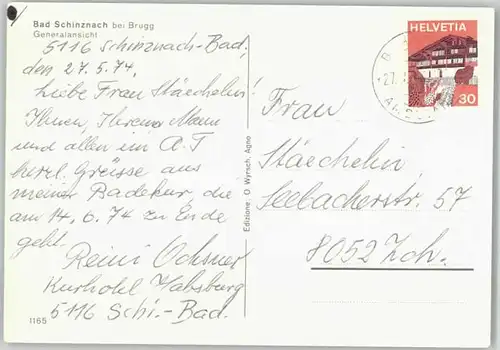 Bad Schinznach bei Brugg
Generalansicht
5116 Schinznach-Bad,
den 27.5.74.
Liebe Frau Stäechelin!
Ihnen, Ihrem Mann
und allen im A.T
herzl. Grüsse aus
meiner Badekur, die
am 14.6.74 zu Ende
geht.
Reini Ochsner
Kurhotel Habsburg
5116 Schi.-Bad.
1165
Edizione. O Wyrsch, Agno
HELVETIA
30
Frau
Stäechelin,
Seebacherstr. 57
8052 Zch.